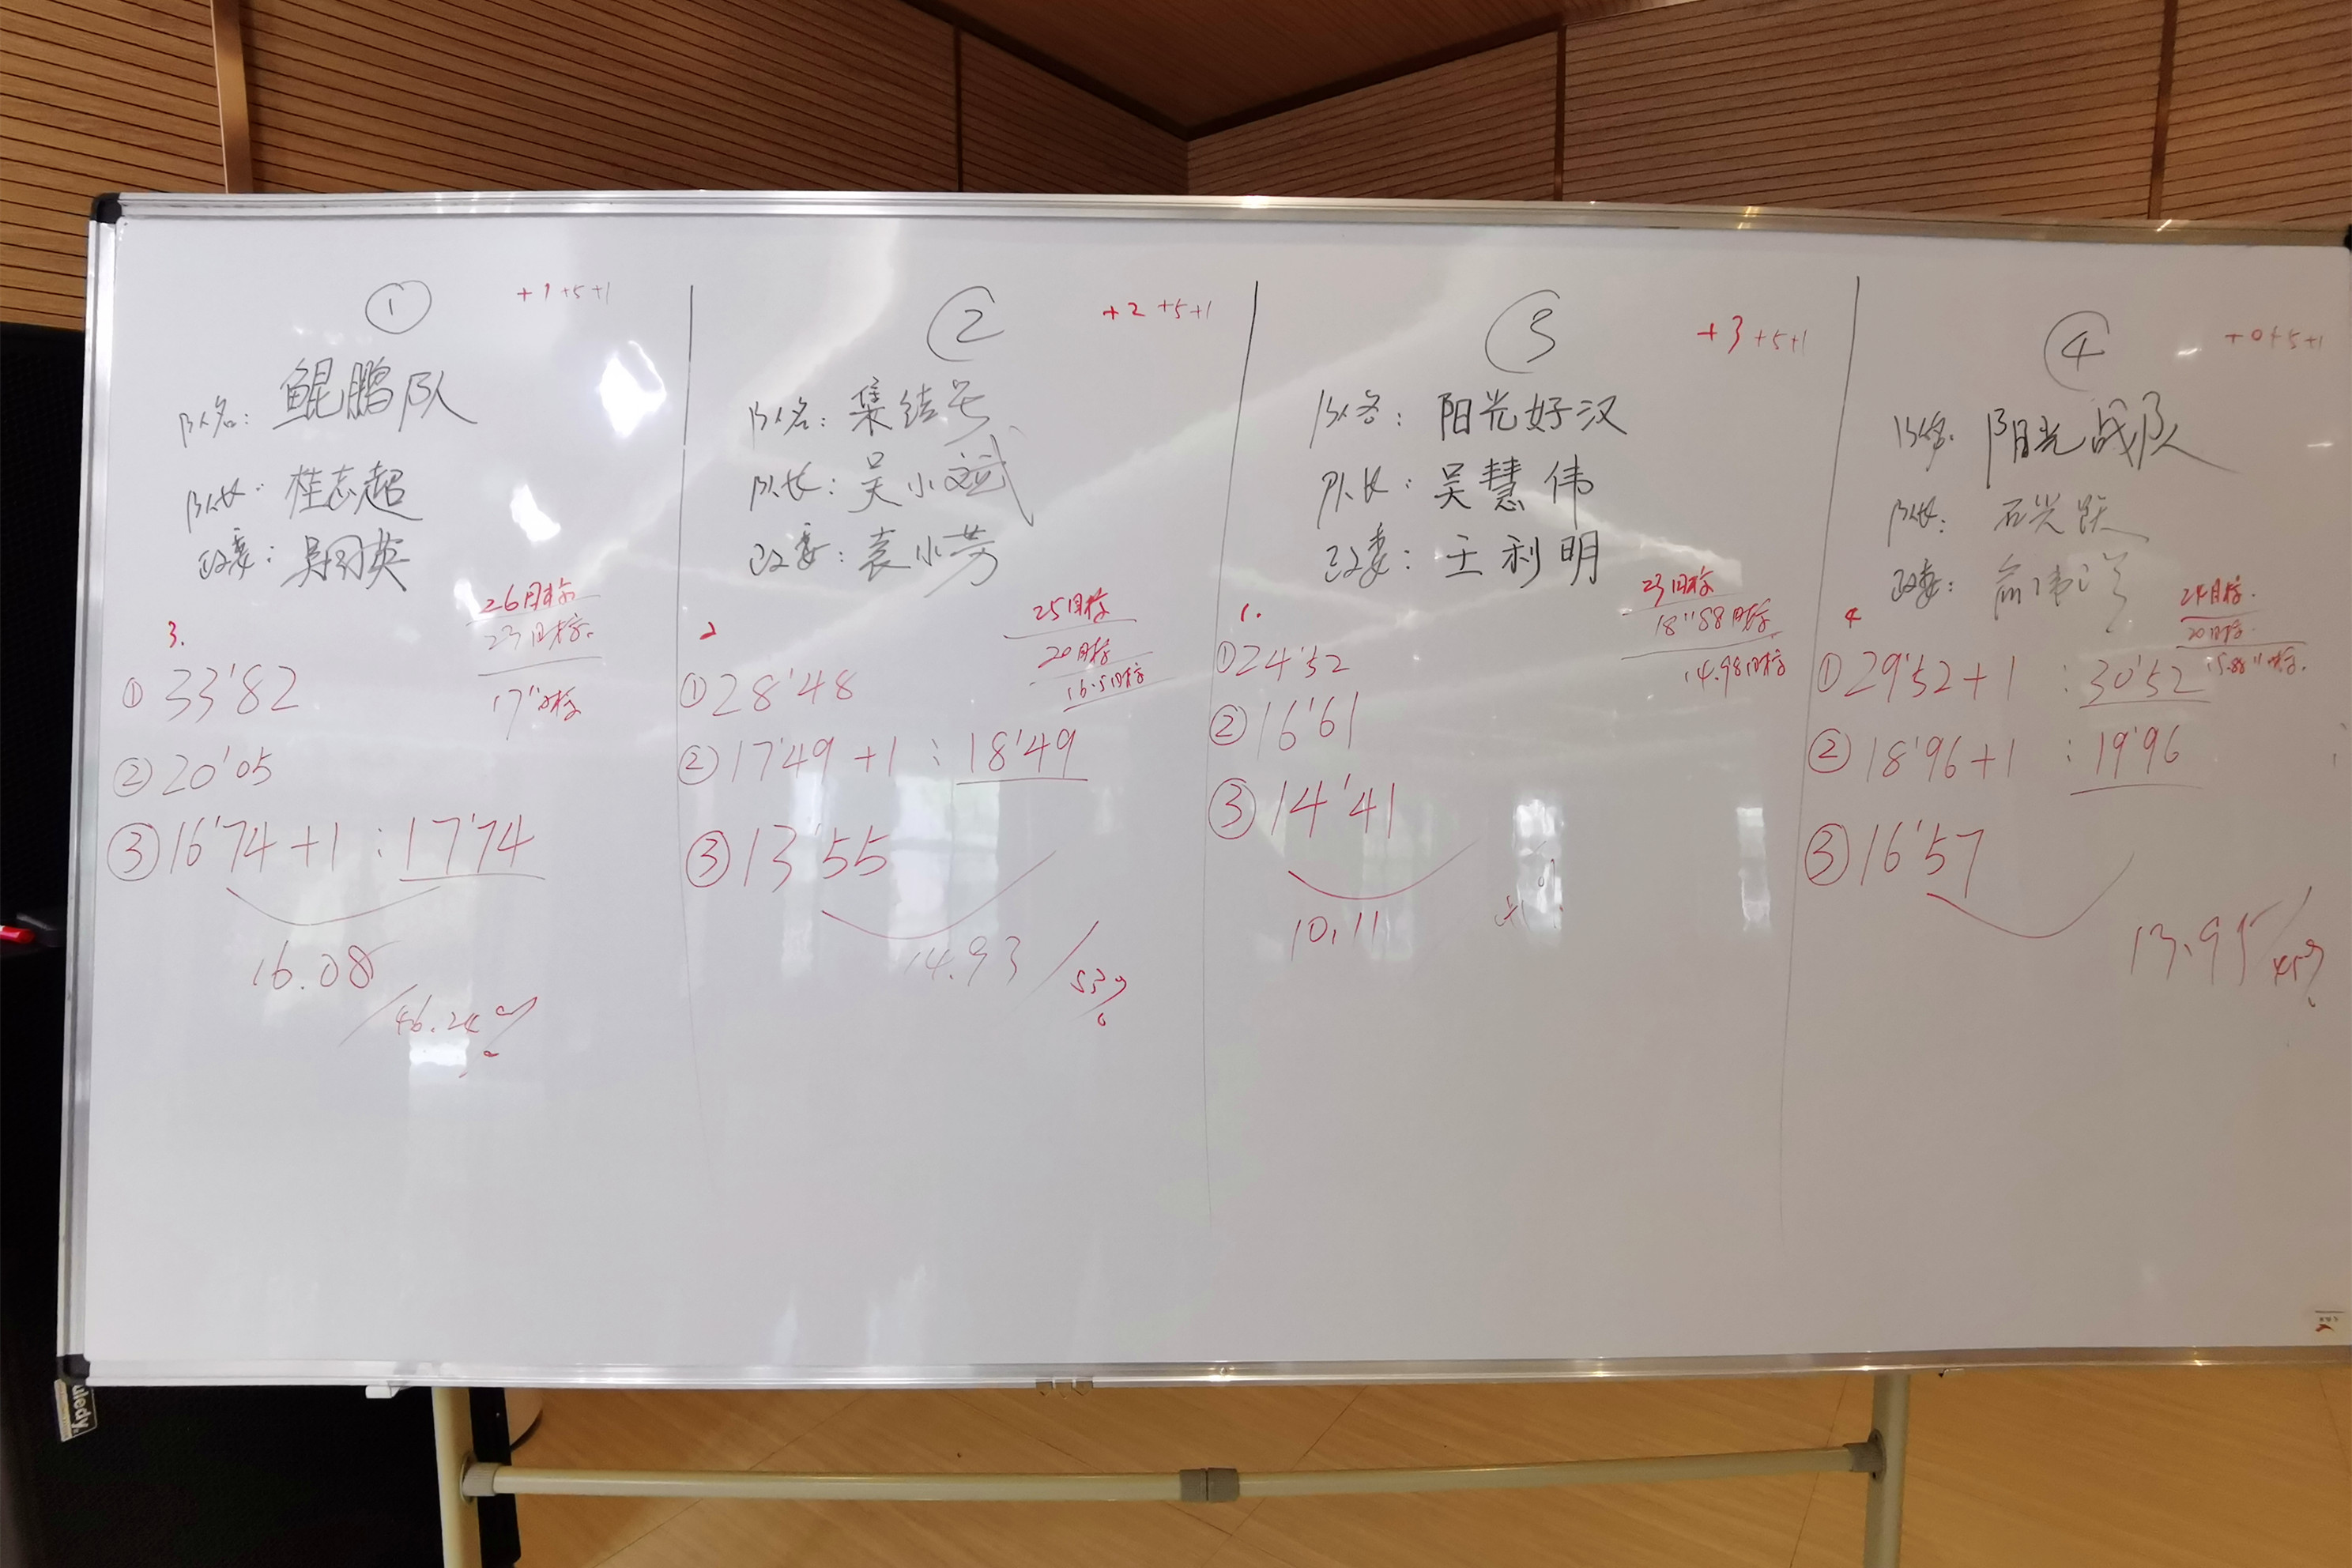 ① +1 +5 +1
队名: 鲲鹏队
队长: 桂志超
政委: 吴英
26目标
23目标.
17"目标
3.
① 33'82
② 20'05
③ 16'74 +1 : 17'74
16.08
46.24%
② +2 +5 +1
队名: 集结号
队长: 吴小斌
政委: 袁小芳
25目标
20目标
16.5目标
2
① 28'48
② 17'49 +1 : 18'49
③ 13'55
14.93
53%
③ +3 +5+1
队名: 阳光好汉
队长: 吴慧伟
政委: 王利明
23目标
18"88目标
14.98目标
1.
① 24'52
② 16'61
③ 14'41
10.11
④ +0+5+1
队名: 阳光战队
队长: 石光跃
政委:
24目标.
20目标.
15.88"目标.
4
① 29'52+1 : 30'52
② 18'96+1 : 19'96
③ 16'57
13.95
uledy.